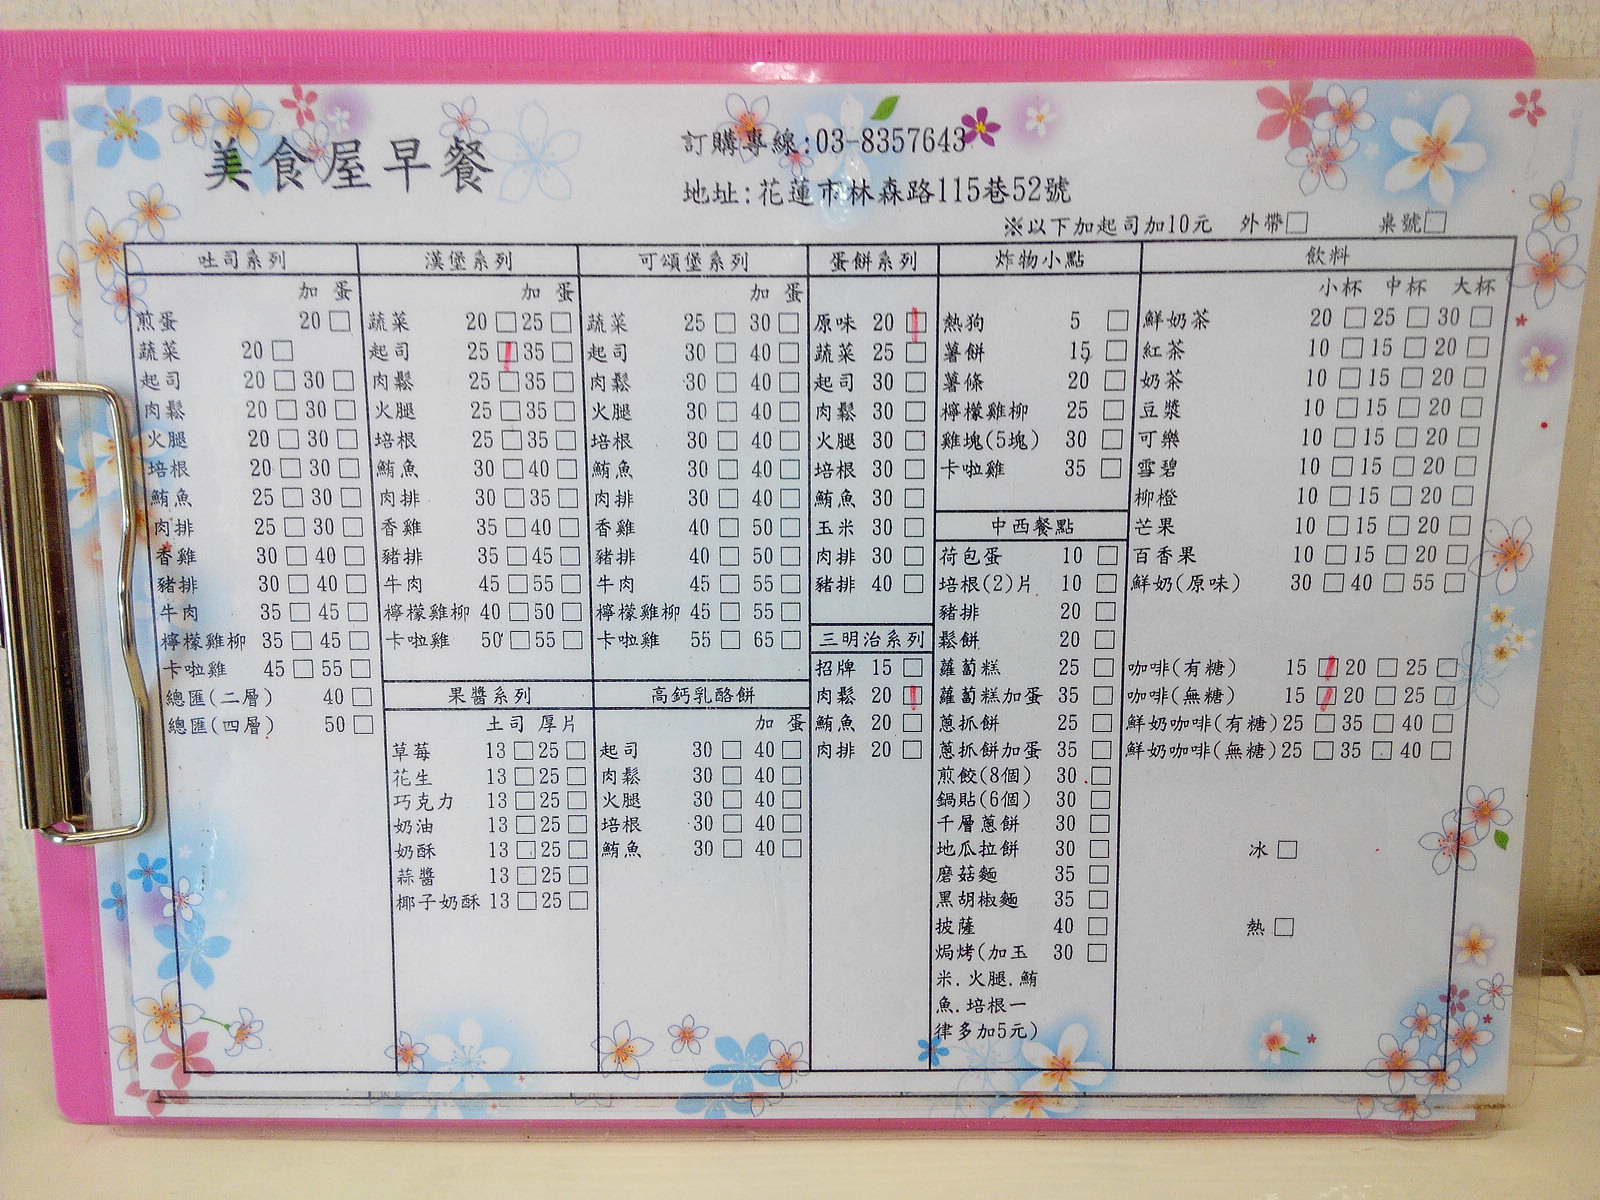 美食屋早餐
訂購專線:03-8357643
地址:花蓮市林森路115巷52號
※以下加起司加10元 外帶□ 桌號□
吐司系列
加 蛋
煎蛋 20 □
蔬菜 20 □
起司 20 □ 30 □
肉鬆 20 □ 30 □
火腿 20 □ 30 □
培根 20 □ 30 □
鮪魚 25 □ 30 □
肉排 25 □ 30 □
香雞 30 □ 40 □
豬排 30 □ 40 □
牛肉 35 □ 45 □
檸檬雞柳 35 □ 45 □
卡啦雞 45 □ 55 □
總匯(二層) 40 □
總匯(四層) 50 □
漢堡系列
加 蛋
蔬菜 20 □ 25 □
起司 25 □ 35 □
肉鬆 25 □ 35 □
火腿 25 □ 35 □
培根 25 □ 35 □
鮪魚 30 □ 40 □
肉排 30 □ 35 □
香雞 35 □ 40 □
豬排 35 □ 45 □
牛肉 45 □ 55 □
檸檬雞柳 40 □ 50 □
卡啦雞 50 □ 55 □
果醬系列
土司 厚片
草莓 13 □ 25 □
花生 13 □ 25 □
巧克力 13 □ 25 □
奶油 13 □ 25 □
奶酥 13 □ 25 □
蒜醬 13 □ 25 □
椰子奶酥 13 □ 25 □
可頌堡系列
加 蛋
蔬菜 25 □ 30 □
起司 30 □ 40 □
肉鬆 30 □ 40 □
火腿 30 □ 40 □
培根 30 □ 40 □
鮪魚 30 □ 40 □
肉排 30 □ 40 □
香雞 40 □ 50 □
豬排 40 □ 50 □
牛肉 45 □ 55 □
檸檬雞柳 45 □ 55 □
卡啦雞 55 □ 65 □
高鈣乳酪餅
加 蛋
起司 30 □ 40 □
肉鬆 30 □ 40 □
火腿 30 □ 40 □
培根 30 □ 40 □
鮪魚 30 □ 40 □
蛋餅系列
原味 20 □
蔬菜 25 □
起司 30 □
肉鬆 30 □
火腿 30 □
培根 30 □
鮪魚 30 □
玉米 30 □
肉排 30 □
豬排 40 □
三明治系列
招牌 15 □
肉鬆 20 □
鮪魚 20 □
肉排 20 □
炸物小點
熱狗 5 □
薯餅 15 □
薯條 20 □
檸檬雞柳 25 □
雞塊(5塊) 30 □
卡啦雞 35 □
中西餐點
荷包蛋 10 □
培根(2)片 10 □
豬排 20 □
鬆餅 20 □
蘿蔔糕 25 □
蘿蔔糕加蛋 35 □
蔥抓餅 25 □
蔥抓餅加蛋 35 □
煎餃(8個) 30 □
鍋貼(6個) 30 □
千層蔥餅 30 □
地瓜拉餅 30 □
磨菇麵 35 □
黑胡椒麵 35 □
披薩 40 □
焗烤(加玉 30 □
米.火腿.鮪
魚.培根一
律多加5元)
飲料
小杯 中杯 大杯
鮮奶茶 20 □ 25 □ 30 □
紅茶 10 □ 15 □ 20 □
奶茶 10 □ 15 □ 20 □
豆漿 10 □ 15 □ 20 □
可樂 10 □ 15 □ 20 □
雪碧 10 □ 15 □ 20 □
柳橙 10 □ 15 □ 20 □
芒果 10 □ 15 □ 20 □
百香果 10 □ 15 □ 20 □
鮮奶(原味) 30 □ 40 □ 55 □
咖啡(有糖) 15 □ 20 □ 25 □
咖啡(無糖) 15 □ 20 □ 25 □
鮮奶咖啡(有糖) 25 □ 35 □ 40 □
鮮奶咖啡(無糖) 25 □ 35 □ 40 □
冰 □
熱 □